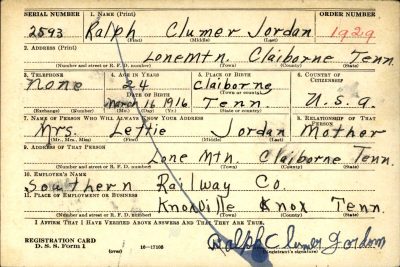 SERIAL NUMBER 1. NAME (Print) ORDER NUMBER
2593 Ralph Clumer Jordan 1929
(First) (Middle) (Last)
2. ADDRESS (Print)
Lone Mtn. Claiborne Tenn.
(Number and street or R. F. D. number) (Town) (County) (State)
3. TELEPHONE 4. AGE IN YEARS 5. PLACE OF BIRTH 6. COUNTRY OF CITIZENSHIP
None 24 Claiborne
DATE OF BIRTH (Town or county)
March 16 1916 Tenn. U.S.a.
(Exchange) (Number) (Mo.) (Day) (Yr.) (State or country)
7. NAME OF PERSON WHO WILL ALWAYS KNOW YOUR ADDRESS 8. RELATIONSHIP OF THAT PERSON
Mrs. Lettie Jordan Mother
(Mr., Mrs., Miss) (First) (Middle) (Last)
9. ADDRESS OF THAT PERSON
Lone Mtn. Claiborne Tenn.
(Number and street or R. F. D. number) (Town) (County) (State)
10. EMPLOYER'S NAME
Southern Railway Co.
11. PLACE OF EMPLOYMENT OR BUSINESS
Knoxville Knox Tenn.
(Number and street or R. F. D. number) (Town) (County) (State)
I AFFIRM THAT I HAVE VERIFIED ABOVE ANSWERS AND THAT THEY ARE TRUE.
REGISTRATION CARD
D. S. S. Form 1 16—17105 Ralph Clumer Jordan
(Registrant's signature)